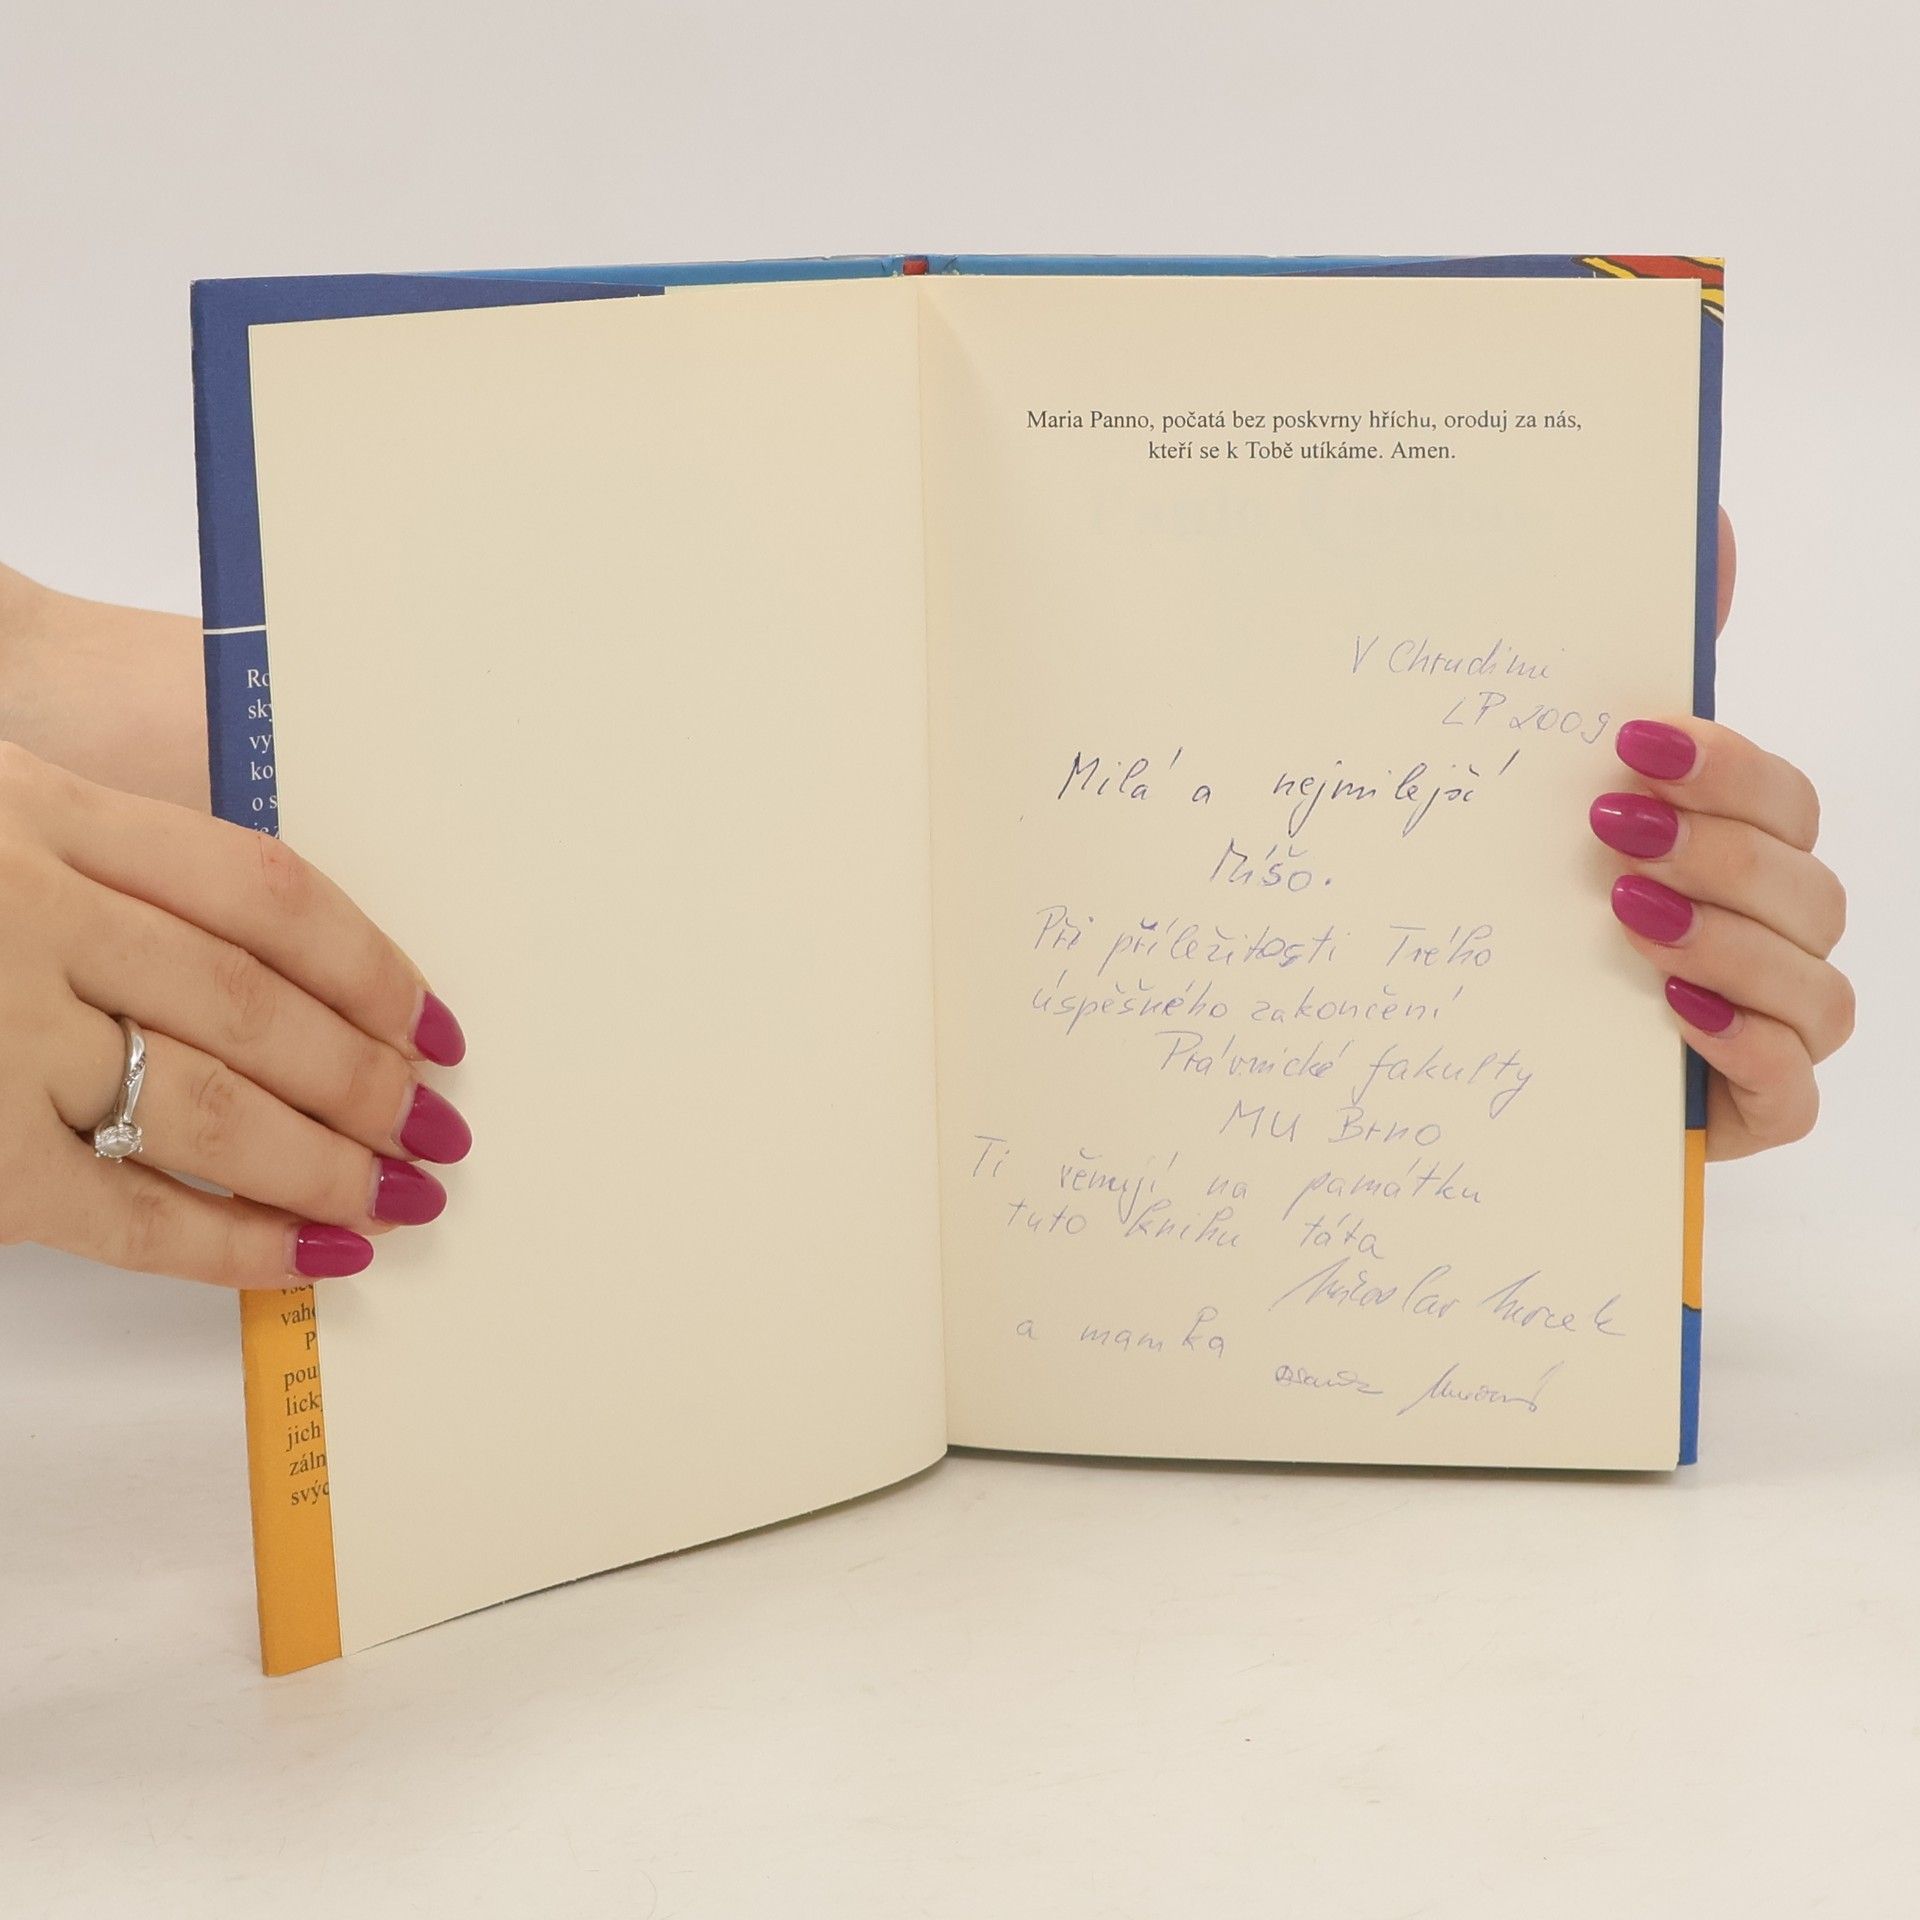 Ro
sky
vy
ko
o s
vah
P
pou
lick
jich
záln
svýc
Maria Panno, počatá bez poskvrny hříchu, oroduj za nás,
kteří se k Tobě utíkáme. Amen.
V Chrudimi
LP 2009
Milá a nejmilejší
Míšo.
Při příležitosti Tvého
úspěšného zakončení
Právnické fakulty
MU Brno
Ti věnují na památku
tuto knihu táta
Miroslav
a mamka